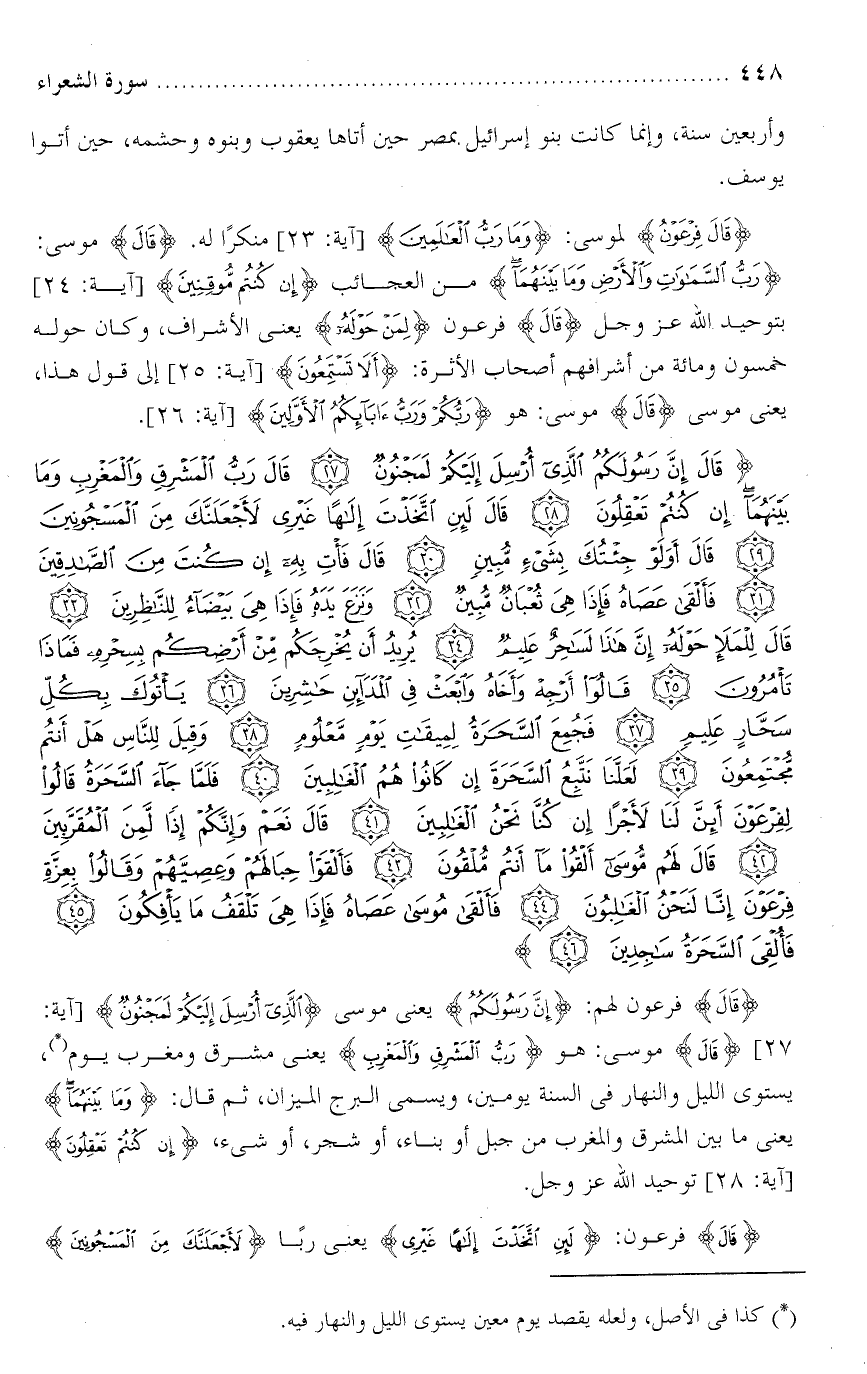 ٤٤٨ ........................................................................ سورة الشعراء
وأربعين سنة، وإنما كانت بنو إسرائيل بمصر حين أتاها يعقوب وبنوه وحشمه، حين أتوا
يوسف.
﴿قَالَ فِرْعَوْنُ﴾ لموسى: ﴿وَمَا رَبُّ الْعَالَمِينَ﴾ [آية: ٢٣] منكرًا له. ﴿قَالَ﴾ موسى:
﴿رَبُّ السَّمَاوَاتِ وَالْأَرْضِ وَمَا بَيْنَهُمَا﴾ من العجائب ﴿إِن كُنتُم مُّوقِنِينَ﴾ [آية: ٢٤]
بتوحيد الله عز وجل ﴿قَالَ﴾ فرعون ﴿لِمَنْ حَوْلَهُ﴾ يعنى الأشراف، وكان حوله
خمسون ومائة من أشرافهم أصحاب الأثرة: ﴿أَلَا تَسْتَمِعُونَ﴾ [آية: ٢٥] إلى قول هذا،
يعنى موسى ﴿قَالَ﴾ موسى: هو ﴿رَبُّكُمْ وَرَبُّ ءَابَآئِكُمُ الْأَوَّلِينَ﴾ [آية: ٢٦].
﴿قَالَ إِنَّ رَسُولَكُمُ الَّذِىٓ أُرْسِلَ إِلَيْكُمْ لَمَجْنُونٌ ٢٧ قَالَ رَبُّ الْمَشْرِقِ وَالْمَغْرِبِ وَمَا
بَيْنَهُمَآ إِن كُنتُمْ تَعْقِلُونَ ٢٨ قَالَ لَئِنِ اتَّخَذْتَ إِلَٰهًا غَيْرِى لَأَجْعَلَنَّكَ مِنَ الْمَسْجُونِينَ
٢٩ قَالَ أَوَلَوْ جِئْتُكَ بِشَىْءٍ مُّبِينٍ ٣٠ قَالَ فَأْتِ بِهِۦٓ إِن كُنتَ مِنَ الصَّٰدِقِينَ
٣١ فَأَلْقَىٰ عَصَاهُ فَإِذَا هِىَ ثُعْبَانٌ مُّبِينٌ ٣٢ وَنَزَعَ يَدَهُۥ فَإِذَا هِىَ بَيْضَآءُ لِلنَّٰظِرِينَ ٣٣
قَالَ لِلْمَلَإِ حَوْلَهُۥٓ إِنَّ هَٰذَا لَسَٰحِرٌ عَلِيمٌ ٣٤ يُرِيدُ أَن يُخْرِجَكُم مِّنْ أَرْضِكُم بِسِحْرِهِۦ فَمَاذَا
تَأْمُرُونَ ٣٥ قَالُوٓا۟ أَرْجِهْ وَأَخَاهُ وَابْعَثْ فِى الْمَدَآئِنِ حَٰشِرِينَ ٣٦ يَأْتُوكَ بِكُلِّ
سَحَّارٍ عَلِيمٍ ٣٧ فَجُمِعَ السَّحَرَةُ لِمِيقَٰتِ يَوْمٍ مَّعْلُومٍ ٣٨ وَقِيلَ لِلنَّاسِ هَلْ أَنتُم
مُّجْتَمِعُونَ ٣٩ لَعَلَّنَا نَتَّبِعُ السَّحَرَةَ إِن كَانُوا۟ هُمُ الْغَٰلِبِينَ ٤٠ فَلَمَّا جَآءَ السَّحَرَةُ قَالُوا۟
لِفِرْعَوْنَ أَئِنَّ لَنَا لَأَجْرًا إِن كُنَّا نَحْنُ الْغَٰلِبِينَ ٤١ قَالَ نَعَمْ وَإِنَّكُمْ إِذًا لَّمِنَ الْمُقَرَّبِينَ
٤٢ قَالَ لَهُم مُّوسَىٰٓ أَلْقُوا۟ مَآ أَنتُم مُّلْقُونَ ٤٣ فَأَلْقَوْا۟ حِبَالَهُمْ وَعِصِيَّهُمْ وَقَالُوا۟ بِعِزَّةِ
فِرْعَوْنَ إِنَّا لَنَحْنُ الْغَٰلِبُونَ ٤٤ فَأَلْقَىٰ مُوسَىٰ عَصَاهُ فَإِذَا هِىَ تَلْقَفُ مَا يَأْفِكُونَ ٤٥
فَأُلْقِىَ السَّحَرَةُ سَٰجِدِينَ ٤٦ ﴾
﴿قَالَ﴾ فرعون لهم: ﴿إِنَّ رَسُولَكُمُ﴾ يعنى موسى ﴿الَّذِىٓ أُرْسِلَ إِلَيْكُمْ لَمَجْنُونٌ﴾ [آية:
٢٧] ﴿قَالَ﴾ موسى: هو ﴿رَبُّ الْمَشْرِقِ وَالْمَغْرِبِ﴾ يعنى مشرق ومغرب يوم(*)،
يستوى الليل والنهار فى السنة يومين، ويسمى البرج الميزان، ثم قال: ﴿وَمَا بَيْنَهُمَآ﴾
يعنى ما بين المشرق والمغرب من جبل أو بناء، أو شجر، أو شىء، ﴿إِن كُنتُمْ تَعْقِلُونَ﴾
[آية: ٢٨] توحيد الله عز وجل.
﴿قَالَ﴾ فرعون: ﴿لَئِنِ اتَّخَذْتَ إِلَٰهًا غَيْرِى﴾ يعنى ربًا ﴿لَأَجْعَلَنَّكَ مِنَ الْمَسْجُونِينَ﴾
(*) كذا فى الأصل، ولعله يقصد يوم معين يستوى الليل والنهار فيه.